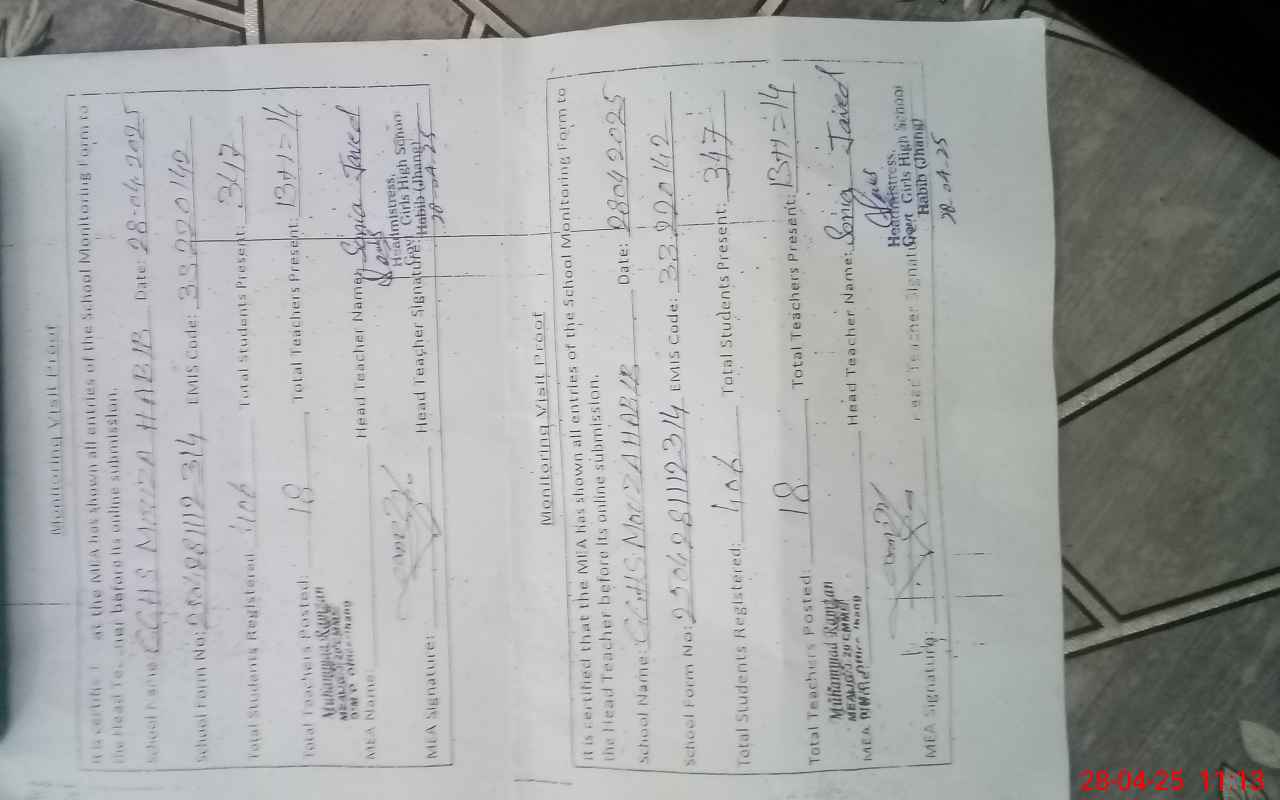 Monitoring Visit Proof
at the MEA has shown all entries of the School Monitoring Form to
the Head Teacher before its online submission.
School Name: GGHS Mouza HABIB Date: 28-04-2025
School Form No: 2504281112314 EMIS Code: 33220142
Total Students Registered 406 Total Students Present: 347
Total Teachers Posted: 18 Total Teachers Present: 13+1=14
Muhammad Ramzan
MEA Name: Head Teacher Name: Sonia Javed
Headmistress,
Govt Girls High School
Habib (Jhang)
MEA Signature: Head Teacher Signature:
28-04-25
Monitoring Visit Proof
It is certified that the MEA has shown all entries of the School Monitoring Form to
the Head Teacher before its online submission.
School Name: GGHS Mouza HABIB Date: 28042025
School Form No: 2504281112314 EMIS Code: 33220142
Total Students Registered: 406 Total Students Present: 347
Total Teachers Posted: 18 Total Teachers Present: 13+1=14
Muhammad Ramzan
MEA Head Teacher Name: Sonia Javed
Headmistress,
Govt Girls High School
Habib (Jhang)
MEA Signature: Head Teacher Signature
28-04-25
28-04-25 11:13